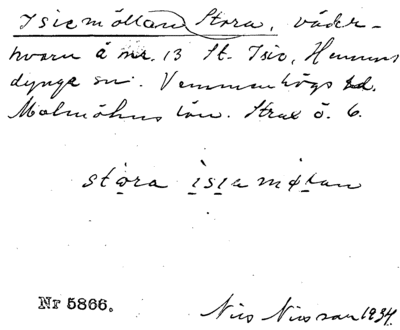 Isiemöllan Stora, väder-
kvarn å nr. 13 St. Isie, Hemmes
dynge sn. Vemmenhögs hd.
Malmöhus län. Strax ö. 6.
stora ìsiamøḷan
Nr 5866.
Nils Nilsson 1934.